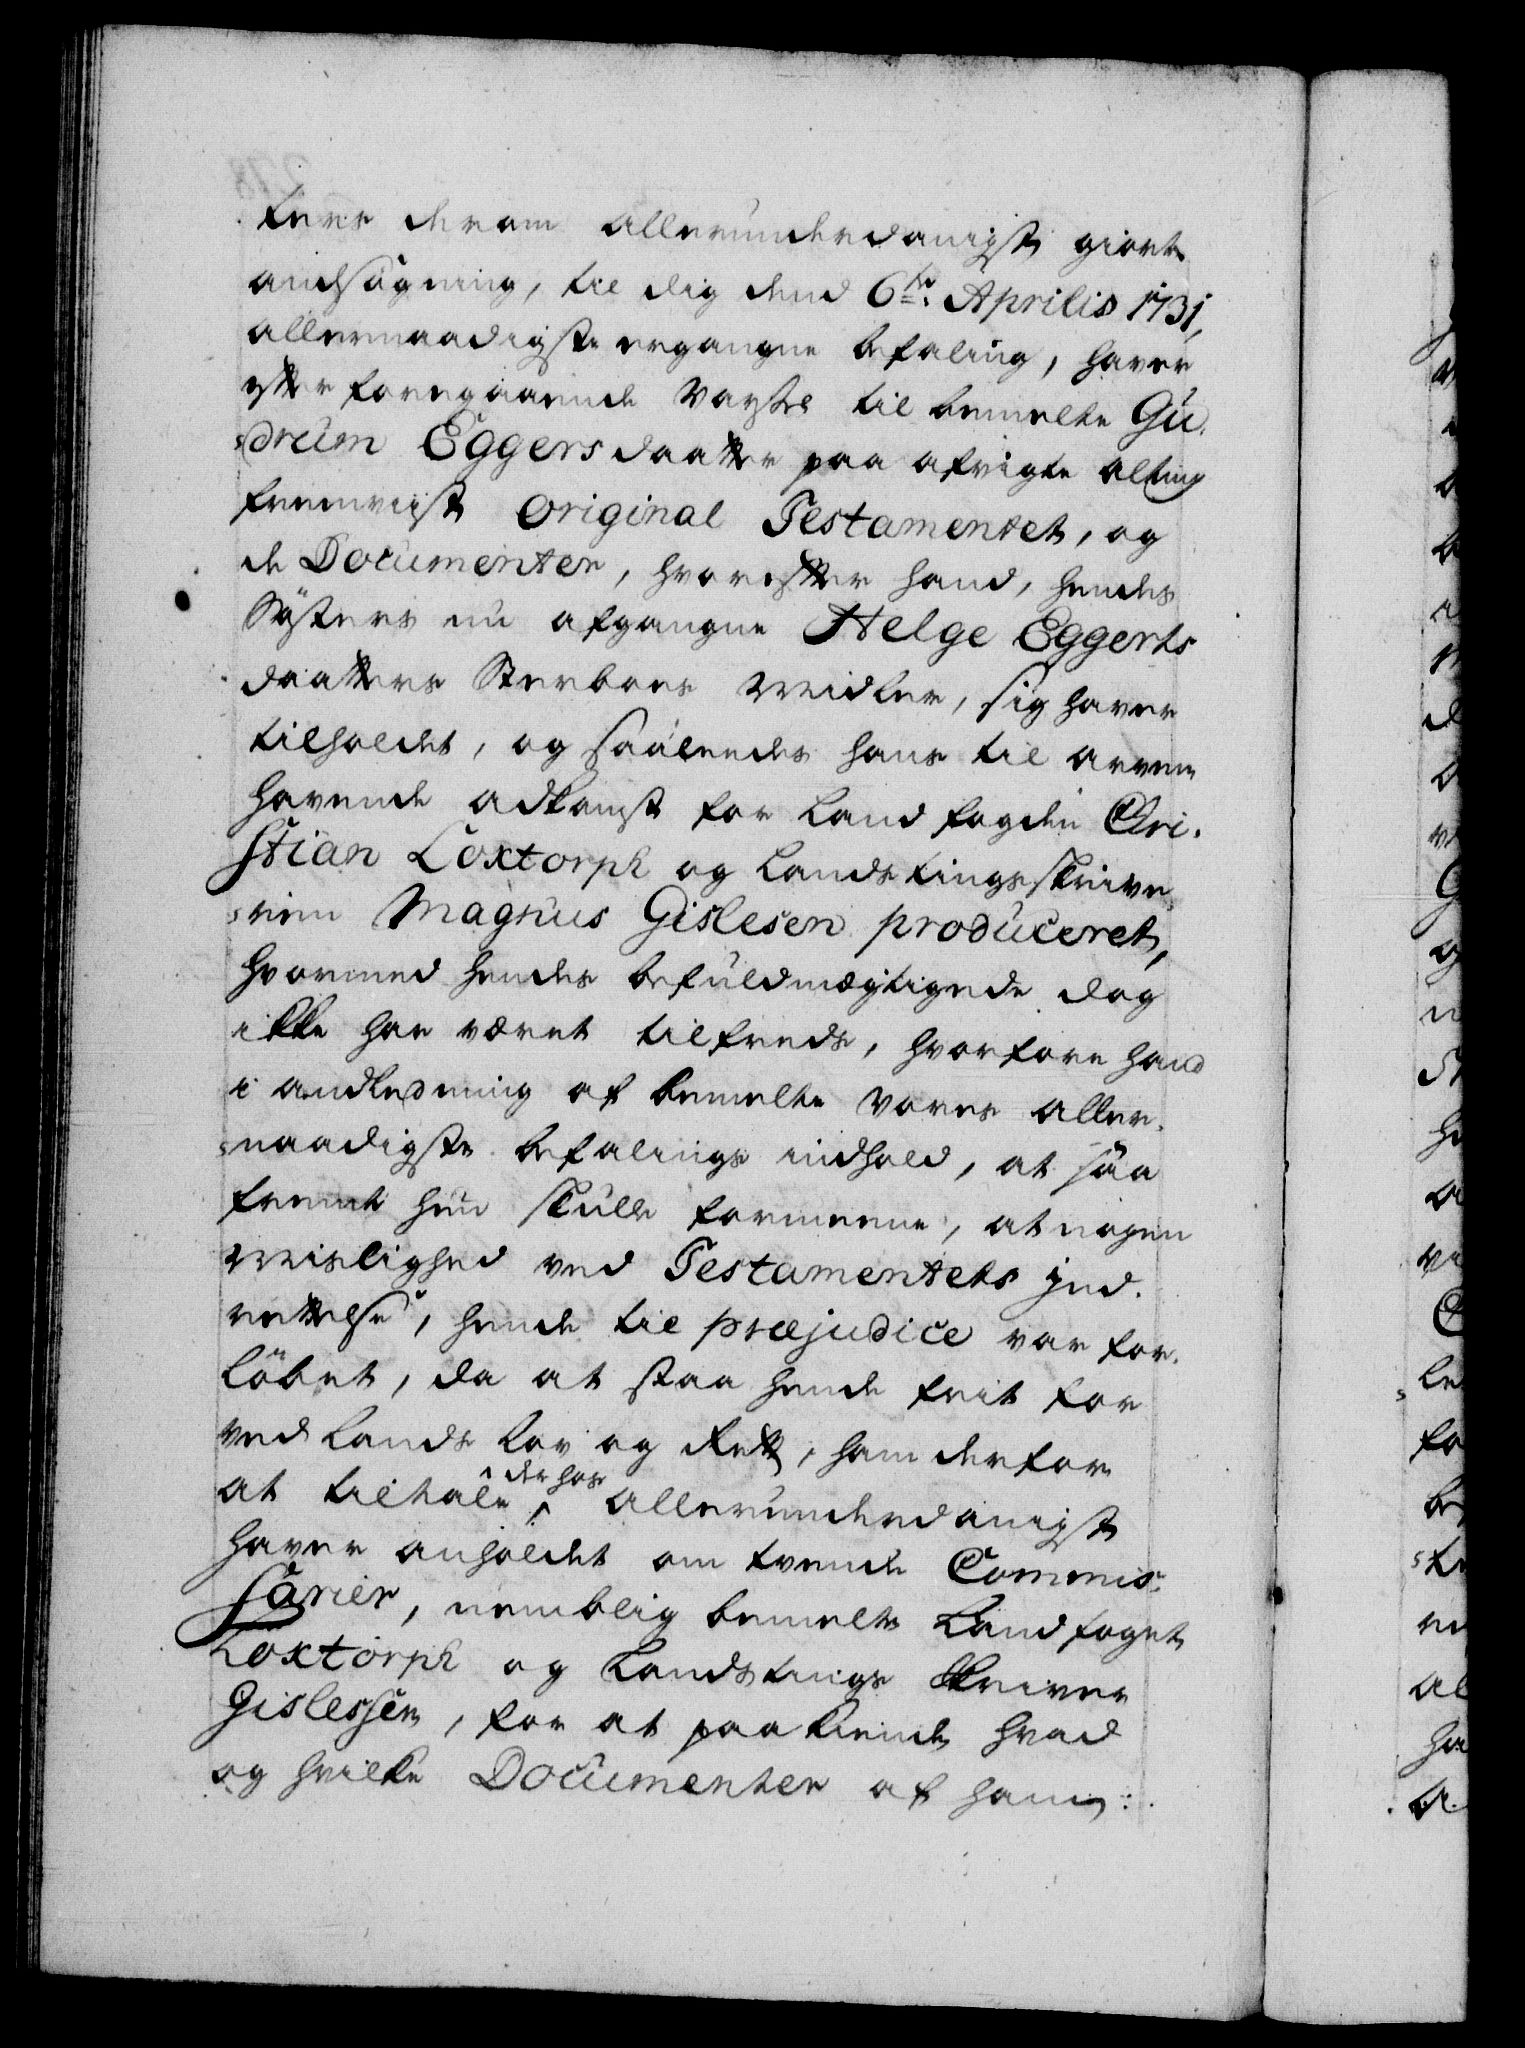 ters derom allerunderdanigst giorte
andsøgning, til dig dend 6te. Aprilis 1731,
allernaadigste ergangne befaling, haver
efter foregaaende varsel til bemelte Gu-
drun Eggersdaatter paa afvigte alting
fremviist original Testamentet, og
de Documenter, hvorefter hand, hendes
Søsters nu afgangne Helge Eggerts
daatters Sterboes Midler, sig haver
tilholdet, og saaledes hans til arven
havende adkomst for Landfogden Chri-
stian Loxtorph og Landstingsskrive-
ren Magnus Gislesen produceret,
hvormed hendes befuldmægtigede dog
ikke har været tilfreds, hvorfore hand
i andledning af bemelte vores aller-
naadigste befalings indhold, at saa
fremt hun skulle formeene, at nogen
Mislighed ved Testamentets Ind-
rettelse, hende til præjudice var for-
løbet, da at staa hende frit for
ved Lands Lov og Rett, ham derfor
at tiltale, derhos allerunderdanigst
haver anholdet om tvende Commis-
sarier, nemblig bemelte Landfoget
Loxtorph og Landstings Skriver
Gislessen, for at paakiende hvad
og hvilke Documenter af ham